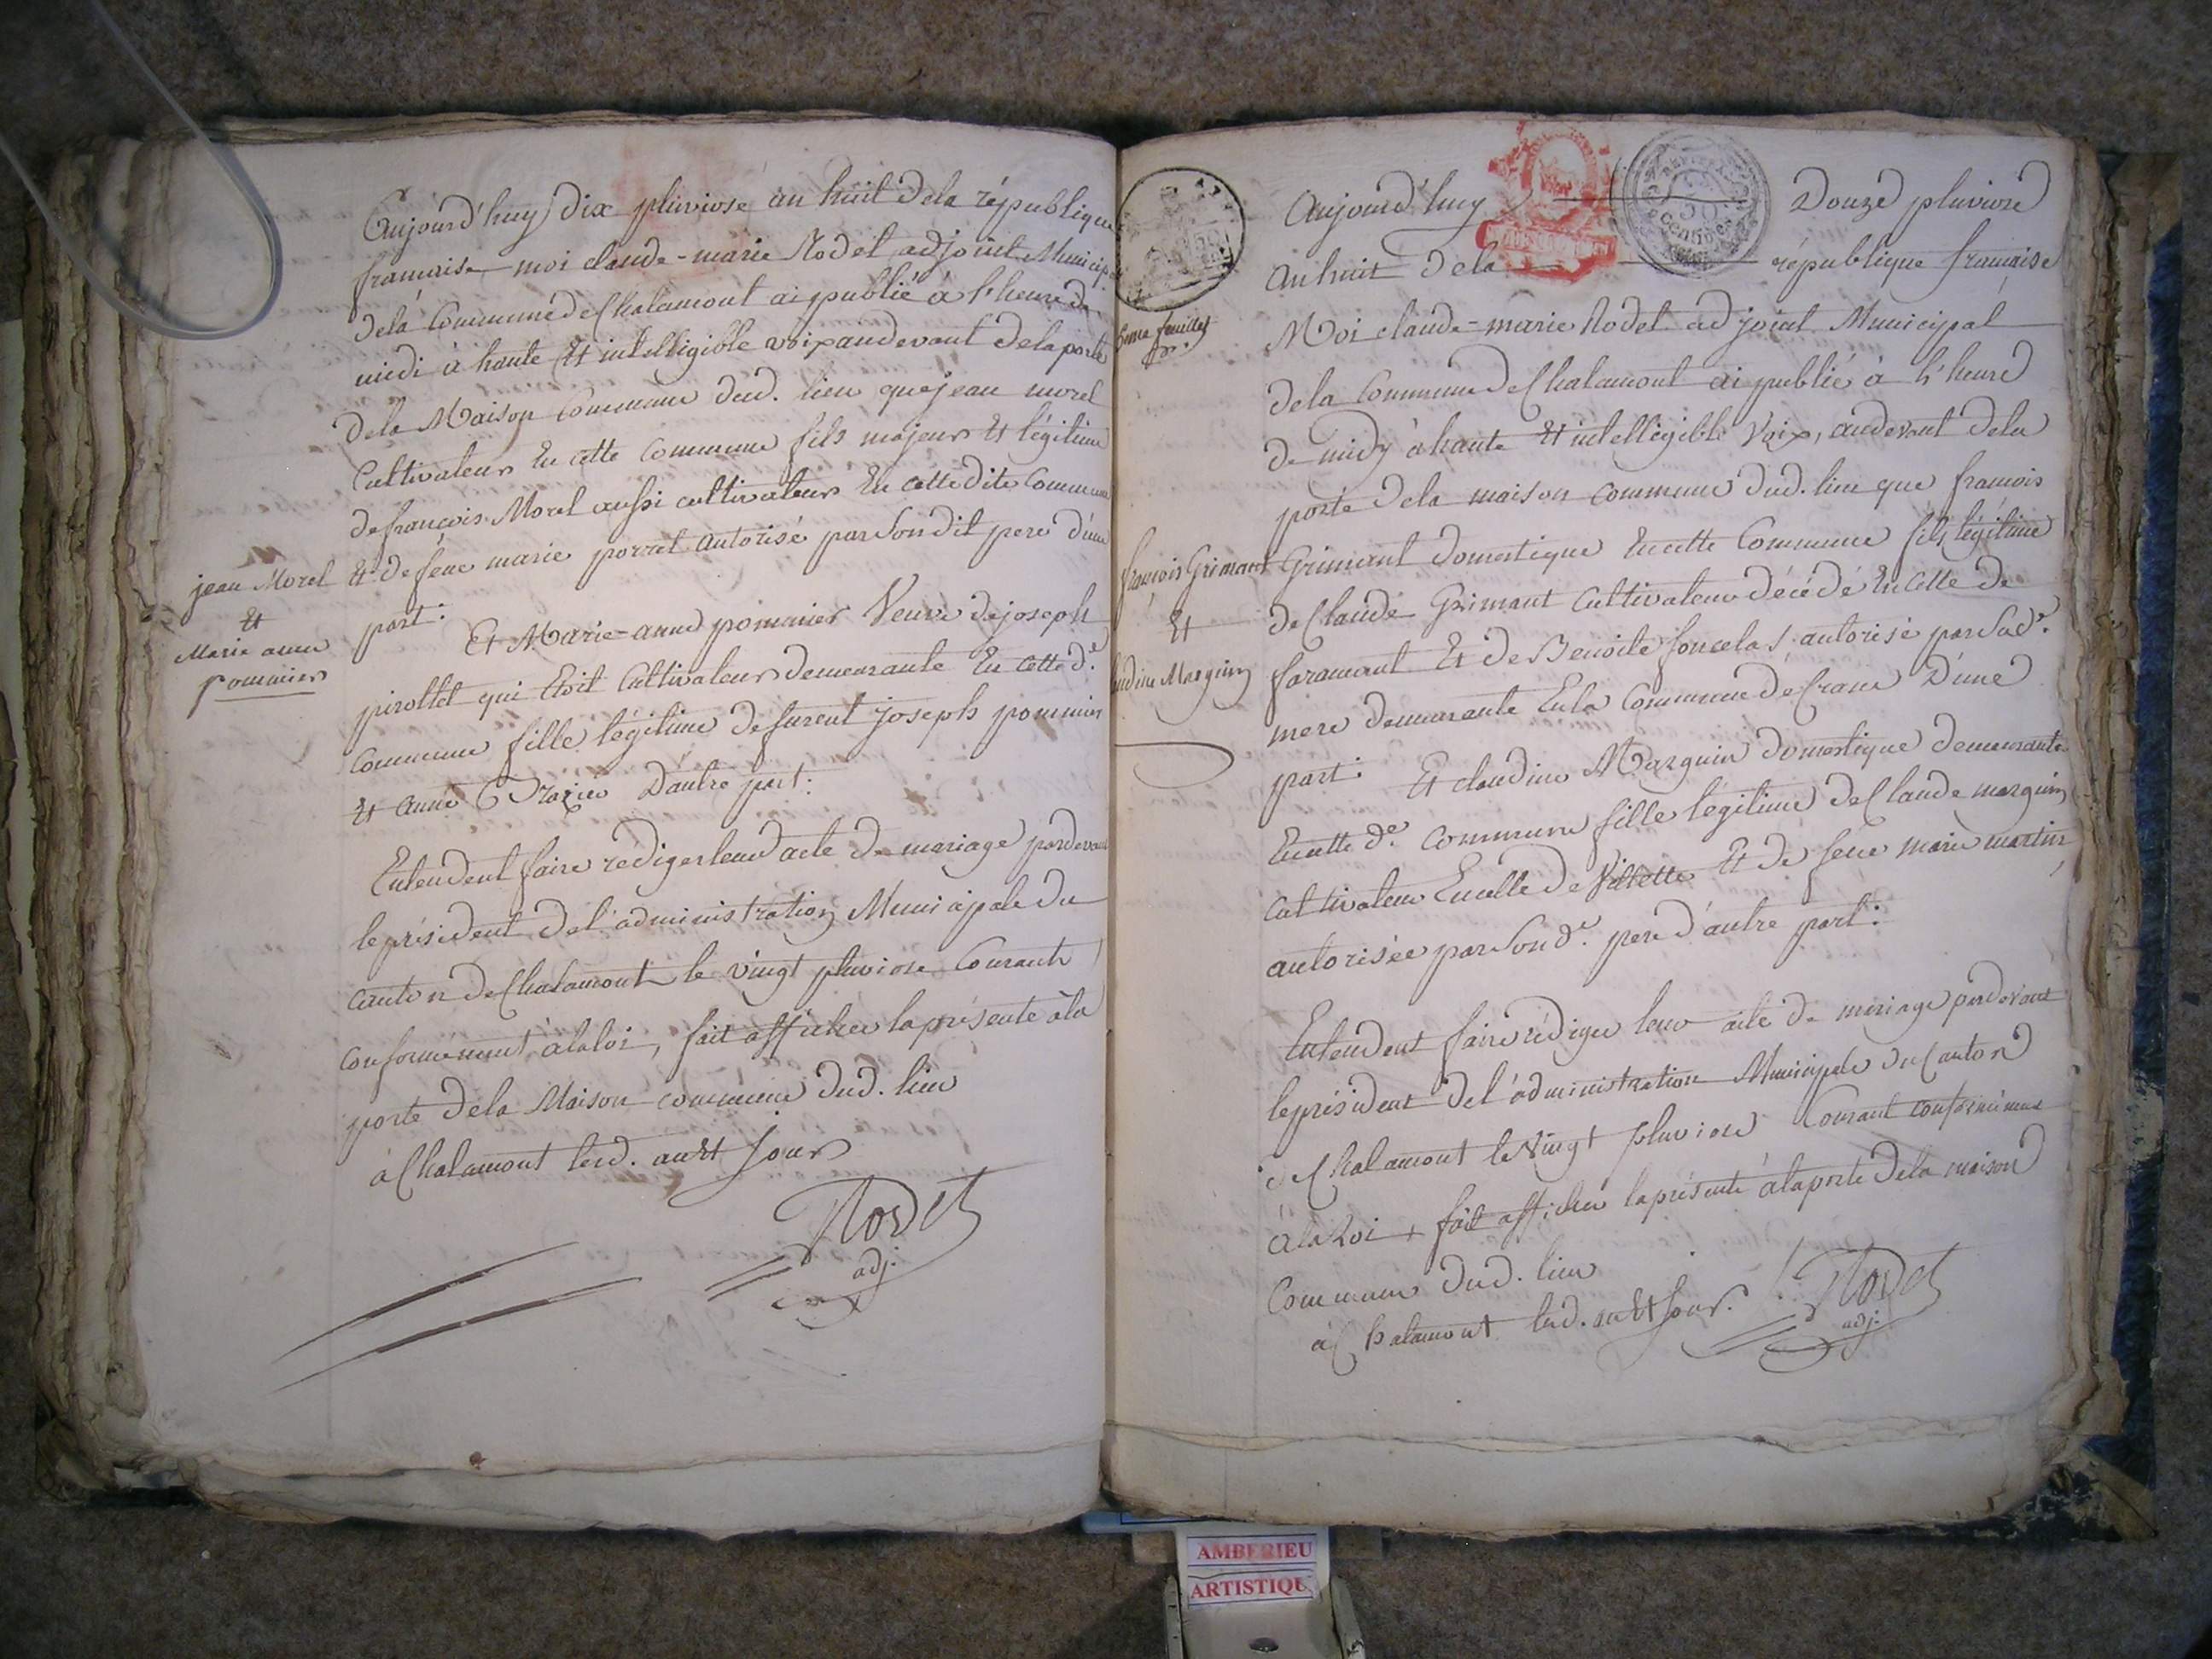 Aujourd'huy dix pluviose an huit dela république
francaise moi claude-marie Rodet adjoint Municipal
dela Commune de Chalamont ai publié à l'heure de
midi à haute Et intelligible voix audevant dela porte
dela Maison Commune dud. lieu que jean morel
Cultivateur En cette Commune fils majeur Et légitime
de françois Morel aussi cultivateur En cette dite Commune
Et de feue marie porret autorisé par son dit pere d'une
part:
jean Morel
Et
Marie anne
pommier
Et Marie-anne pommier Veuve de joseph
pirollet qui Etoit Cultivateur demeurante En cette d.e
Commune fille légitime de furent joseph pommier
Et anne D'autre part:
Entendent faire rediger leur acte de mariage pardevant
le président del'administration Municipale du
canton de Chalamont le vingt pluviose Courant
conformément àlaloi, fait afficher laprésente àla
porte dela Maison commune dud. lieu
à Chalamont lesd. an Et jour
Rodet
adj.
6eme feuillet
Aujourd'huy Douze pluviose
an huit dela république francaise
Moi claude-marie Rodet adjoint Municipal
dela Commune de Chalamont ai publié à l'heure
de midy à haute Et intelligible Voix, audevant dela
porte dela maison commune dud. lieu que francois
Grimant domestique En cette Commune fils légitime
de Claude Grimant Cultivateur décédé En Celle de
faramant Et de Benoite autorisé par Sad.e
mere demeurante En la Commune de Crans D'une
part:
françois Grimant
Et
Marguin
Et claudine Marguin domestique demeurante
En cette d.e Commune fille légitime de Claude marguin
cultivateur En celle de Villette Et de feue marie martin
autorisée par son d.e pere d'autre part:
Entendent faire rédiger leur acte de mariage pardevant
leprésident del'administration Municipale du Canton
de Chalamont le Vingt pluviose Courant conformément
àla Loi + fait afficher laprésente àlaporte dela maison
Commune dud. lieu
à Chalamont lesd. an Et jour.
Rodet
adj.
50
Centimes
AMBERIEU
ARTISTIQU